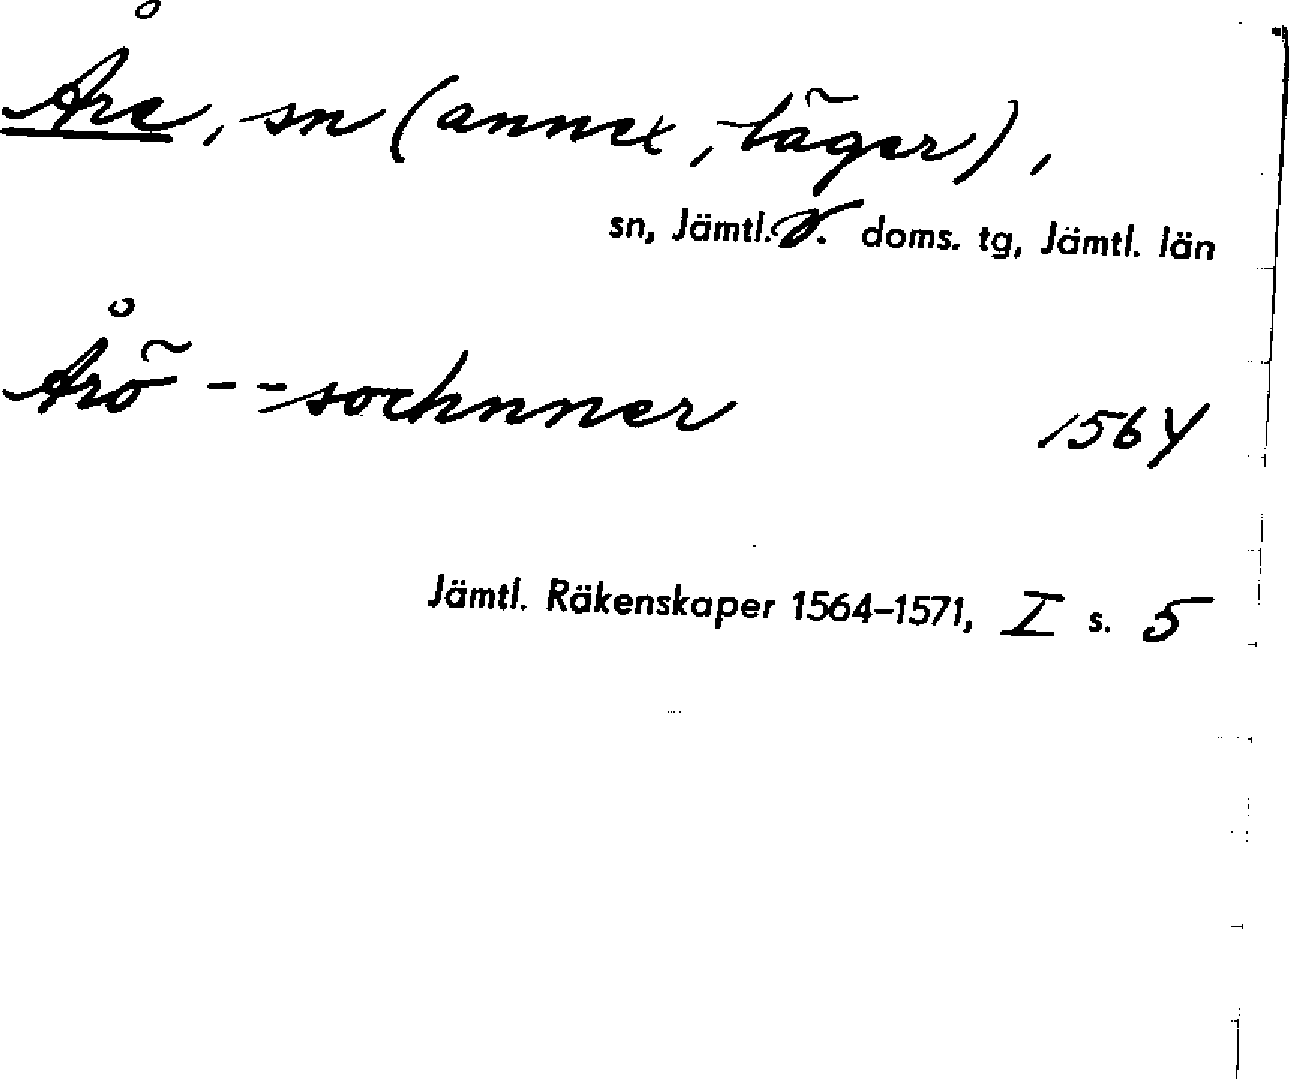 Åre, sn (annex, läger),
sn, Jämtl. V. doms. tg, Jämtl. län
Årö -- sochnner 1564
Jämtl. Räkenskaper 1564–1571, I s. 5